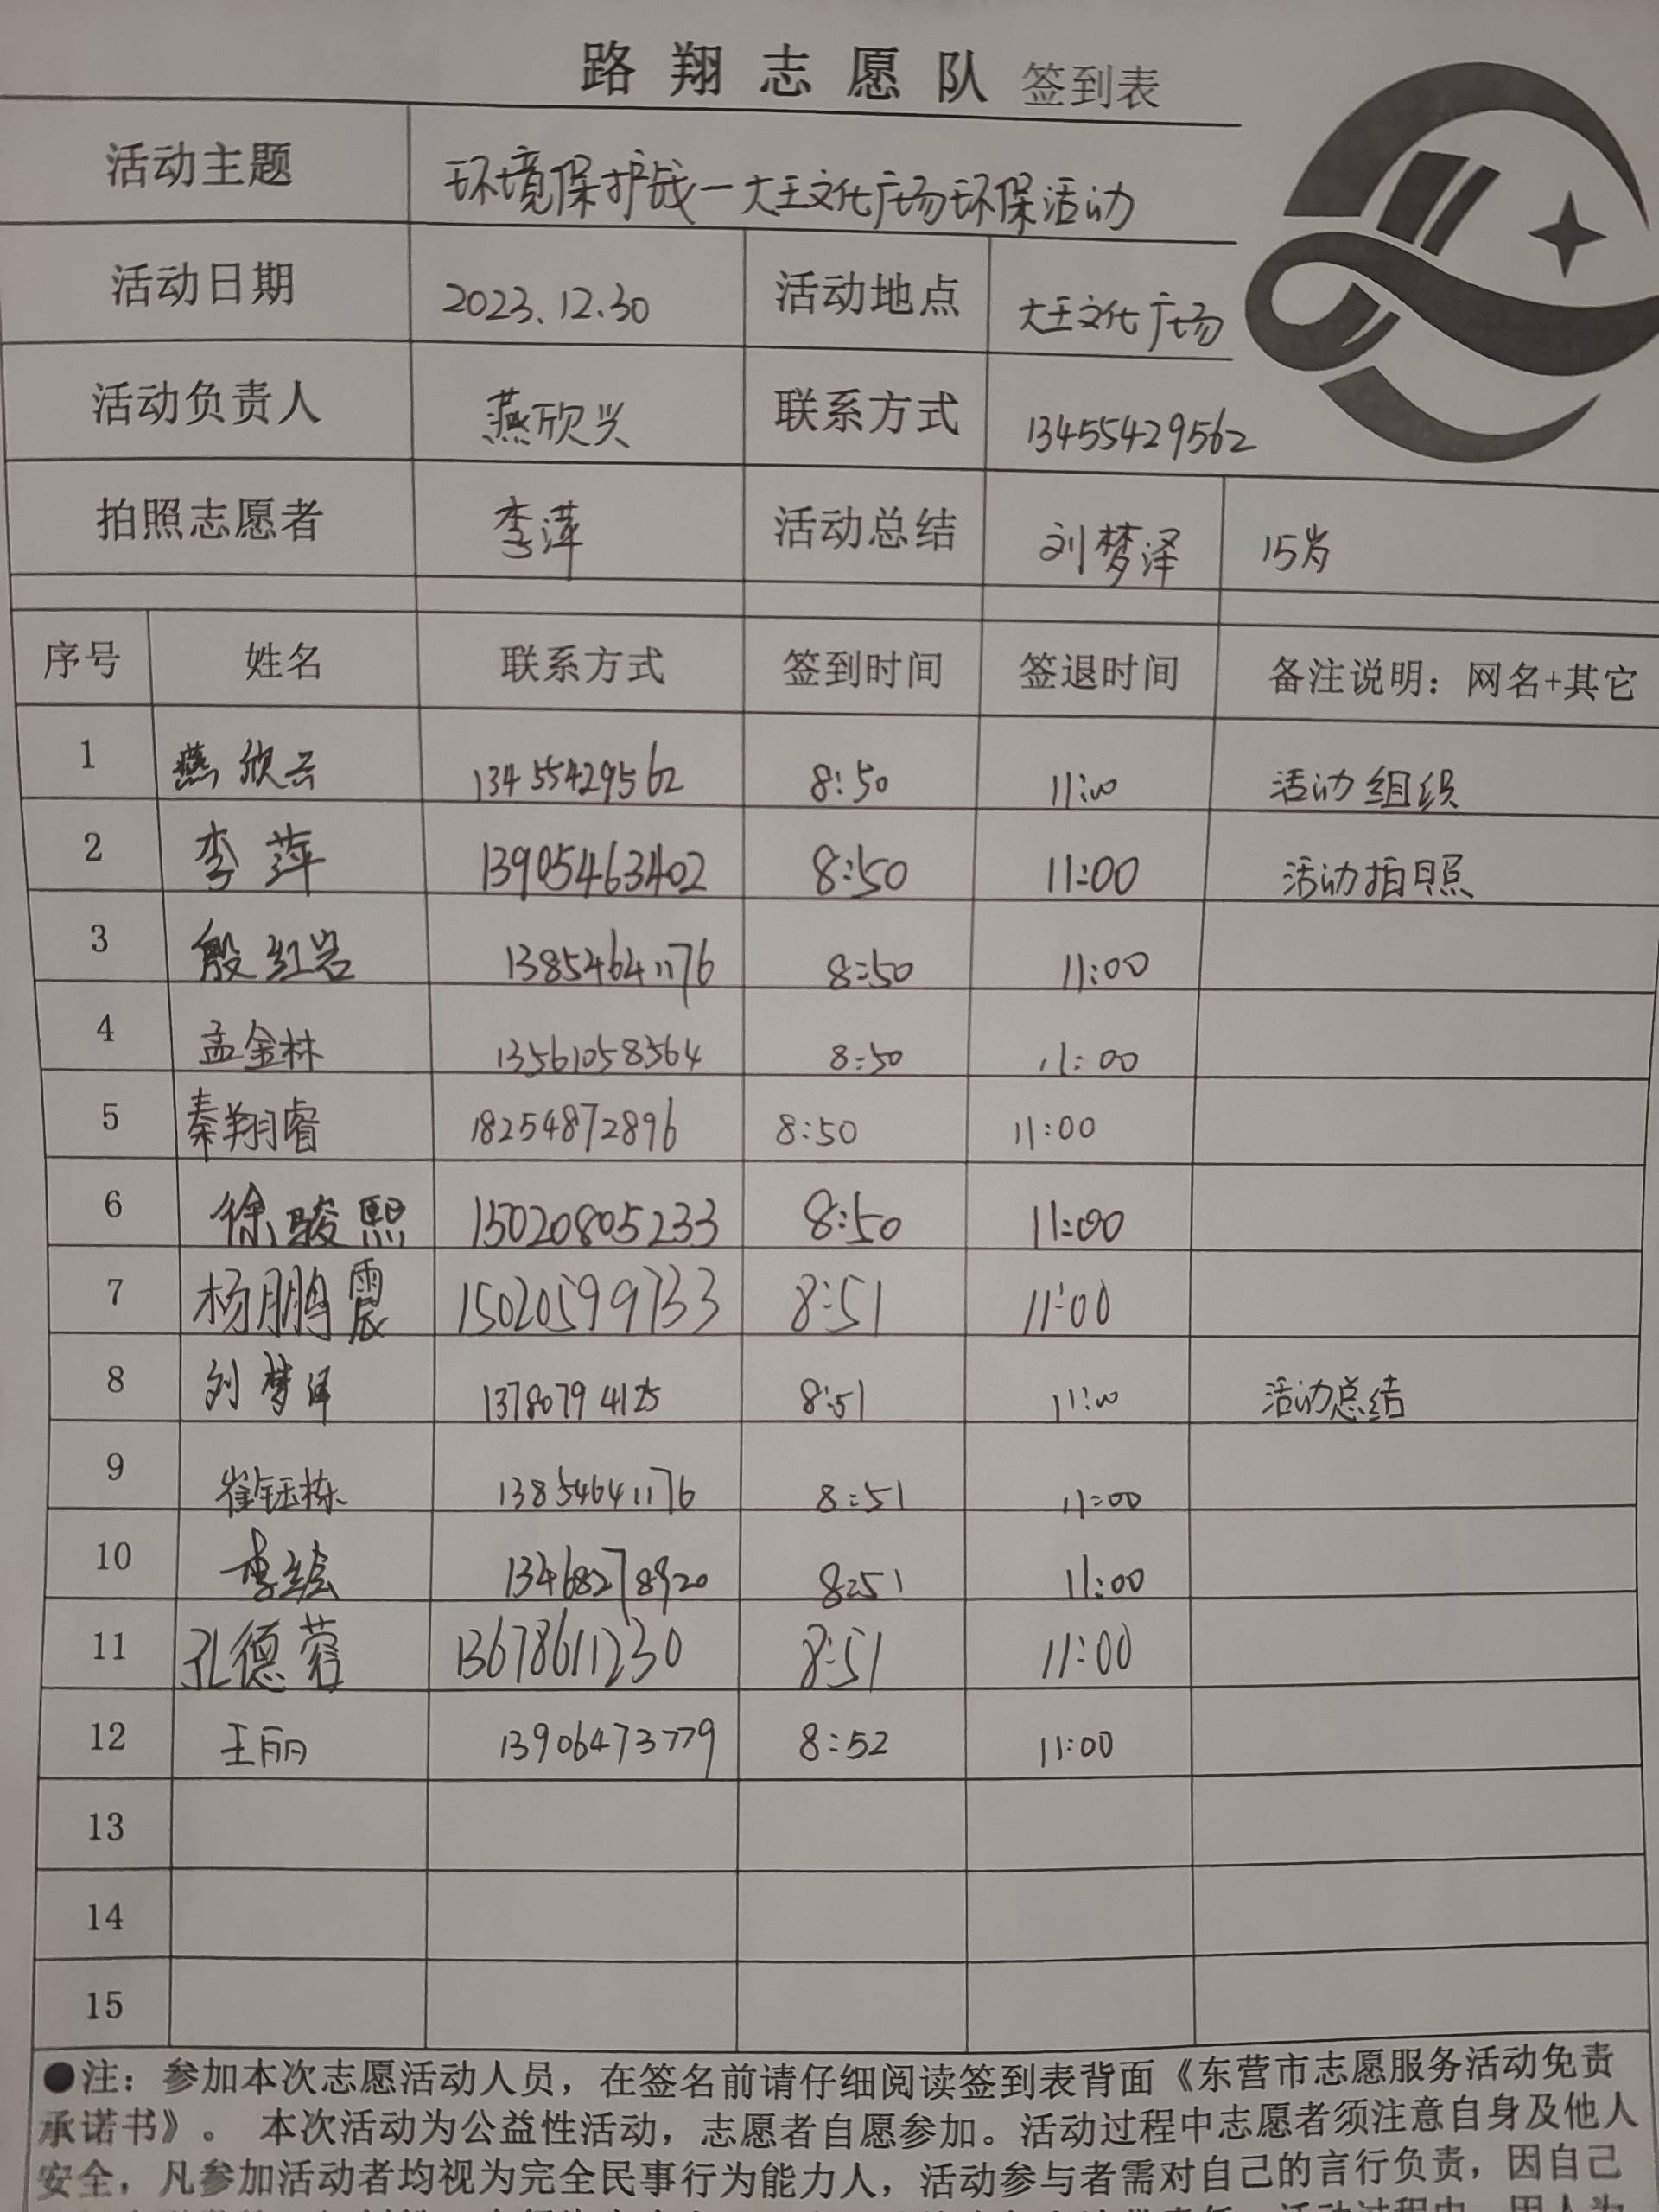 路翔志愿队 签到表
活动主题 环境保护战一大王文化广场环保活动
活动日期 2023.12.30 活动地点 大王文化广场
活动负责人 燕欣兴 联系方式 13455429562
拍照志愿者 李萍 活动总结 刘梦泽 15岁
序号 姓名 联系方式 签到时间 签退时间 备注说明：网名+其它
1 燕欣兴 13455429562 8:50 11:00 活动组织
2 李萍 13905463402 8:50 11:00 活动拍照
3 殷红岩 13854641176 8:50 11:00
4 孟金林 13561058564 8:50 11:00
5 秦翔睿 18254872896 8:50 11:00
6 徐骏熙 15020805233 8:50 11:00
7 杨鹏震 15020599733 8:51 11:00
8 刘梦泽 13780794125 8:51 11:00 活动总结
9 崔钰栋 13854641176 8:51 11:00
10 李绘 13468278920 8:51 11:00
11 孔德蓉 13678611230 8:51 11:00
12 王丽 13906473779 8:52 11:00
13
14
15
●注：参加本次志愿活动人员，在签名前请仔细阅读签到表背面《东营市志愿服务活动免责
承诺书》。 本次活动为公益性活动，志愿者自愿参加。活动过程中志愿者须注意自身及他人
安全，凡参加活动者均视为完全民事行为能力人，活动参与者需对自己的言行负责，因自己